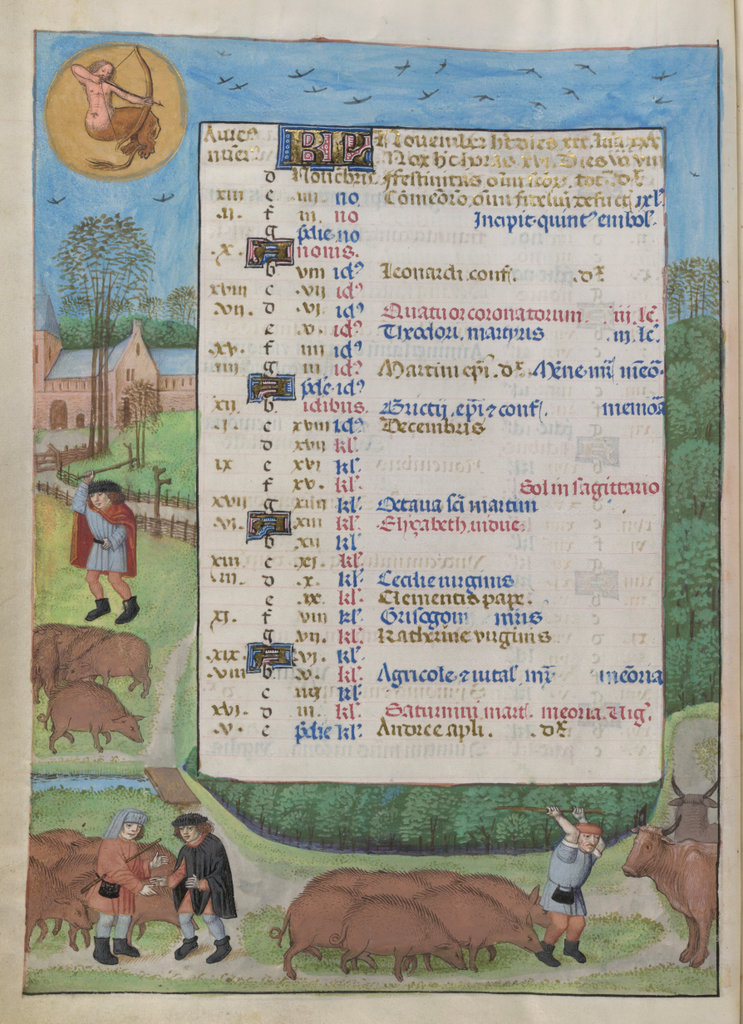 Aurea KL November ht dies xxx. luna xxx
numer' Nox ht horas xvi. Dies vo viii
d Novẽbris Festivitas oĩm
xiii e iiii no Cõmẽoro. oĩm fideliũ defũct'
.ii. f iii. no Incipit quint' embol'.
g p̃die no
.x. A nonis.
b viii id' Leonardi conf. dx
xviii c .vii id'
.vii. d .vi. id' Quatuor coronatorum .iii. lc̃.
e .v. id' Theodori. martyris .iii. lc̃.
.xv. f iiii id'
.iiii g iii id' Martini ep̃i. dx Mẽne m̃
A p̃die id'
.xii. b idibus. Brictii. ep̃i & conf.
c xviii Decembris
d xvii kl'.
ix e xvi kl'.
f xv. kl'. Sol in sagittario
xvii g xiiii kl'. Octava sc̃i martini
.vi. A xiii kl'. Elyzabeth. vidue
b xii kl'
xiiii c xi. kl'.
.iii. d .x. kl'. Cecilie virginis
e .ix. kl'. Clementis pape.
.xi. f viii kl'. Grisogoni m̃ris
g vii. kl'. Katherine virginis
.xix. A .vi. kl'.
.viii b .v. kl'. Agricole & vital. m̃r mẽoria
c iiii kl'.
xvi. d iii. kl'. Saturnini mart. mẽoria. Vig.
.v. e p̃die kl'. Andree apl̃i. dx